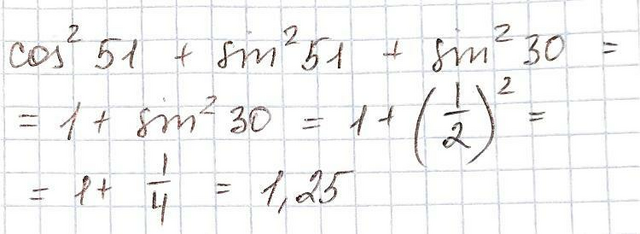 cos² 51 + sin² 51 + sin² 30 =
= 1 + sin² 30 = 1 + (1/2)² =
= 1 + 1/4 = 1,25